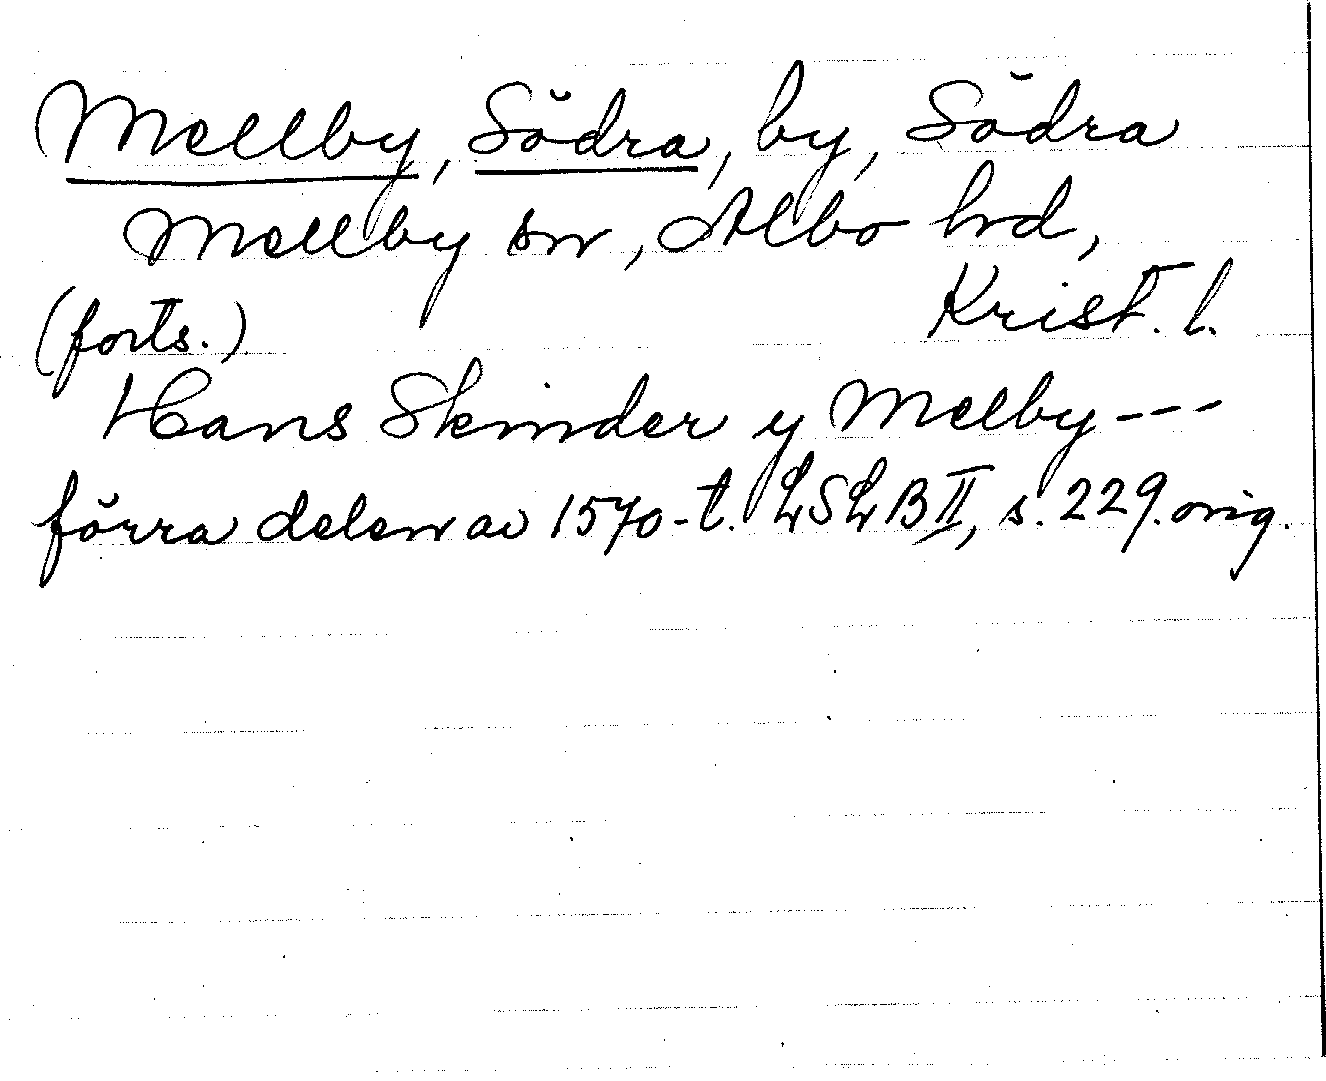 Mellby, Södra, by, Södra
Mellby sn, Albo hd,
Krist. l.
(forts.)
Hans Skinder y Melby ---
förra delen av 1570-t. LSLB II, s. 229. orig.